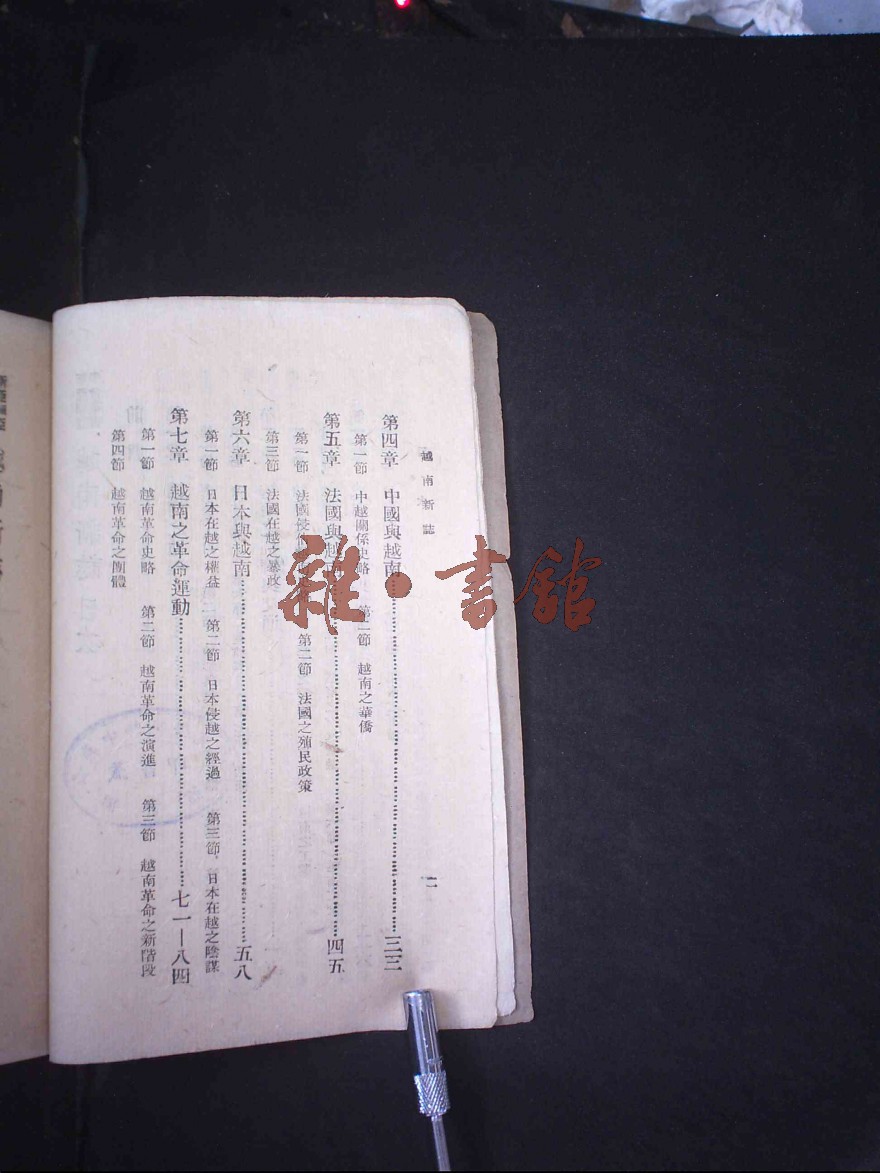 越南新誌
二
第四章 中國與越南……三三
第一節 中越關係史略 第二節 越南之華僑
第五章 法國與越南……四五
第一節 法國侵 第二節 法國之殖民政策
第三節 法國在越之暴政
第六章 日本與越南……五八
第一節 日本在越之權益 第二節 日本侵越之經過 第三節 日本在越之陰謀
第七章 越南之革命運動……七一—八四
第一節 越南革命史略 第二節 越南革命之演進 第三節 越南革命之新階段
第四節 越南革命之團體
雜·書館